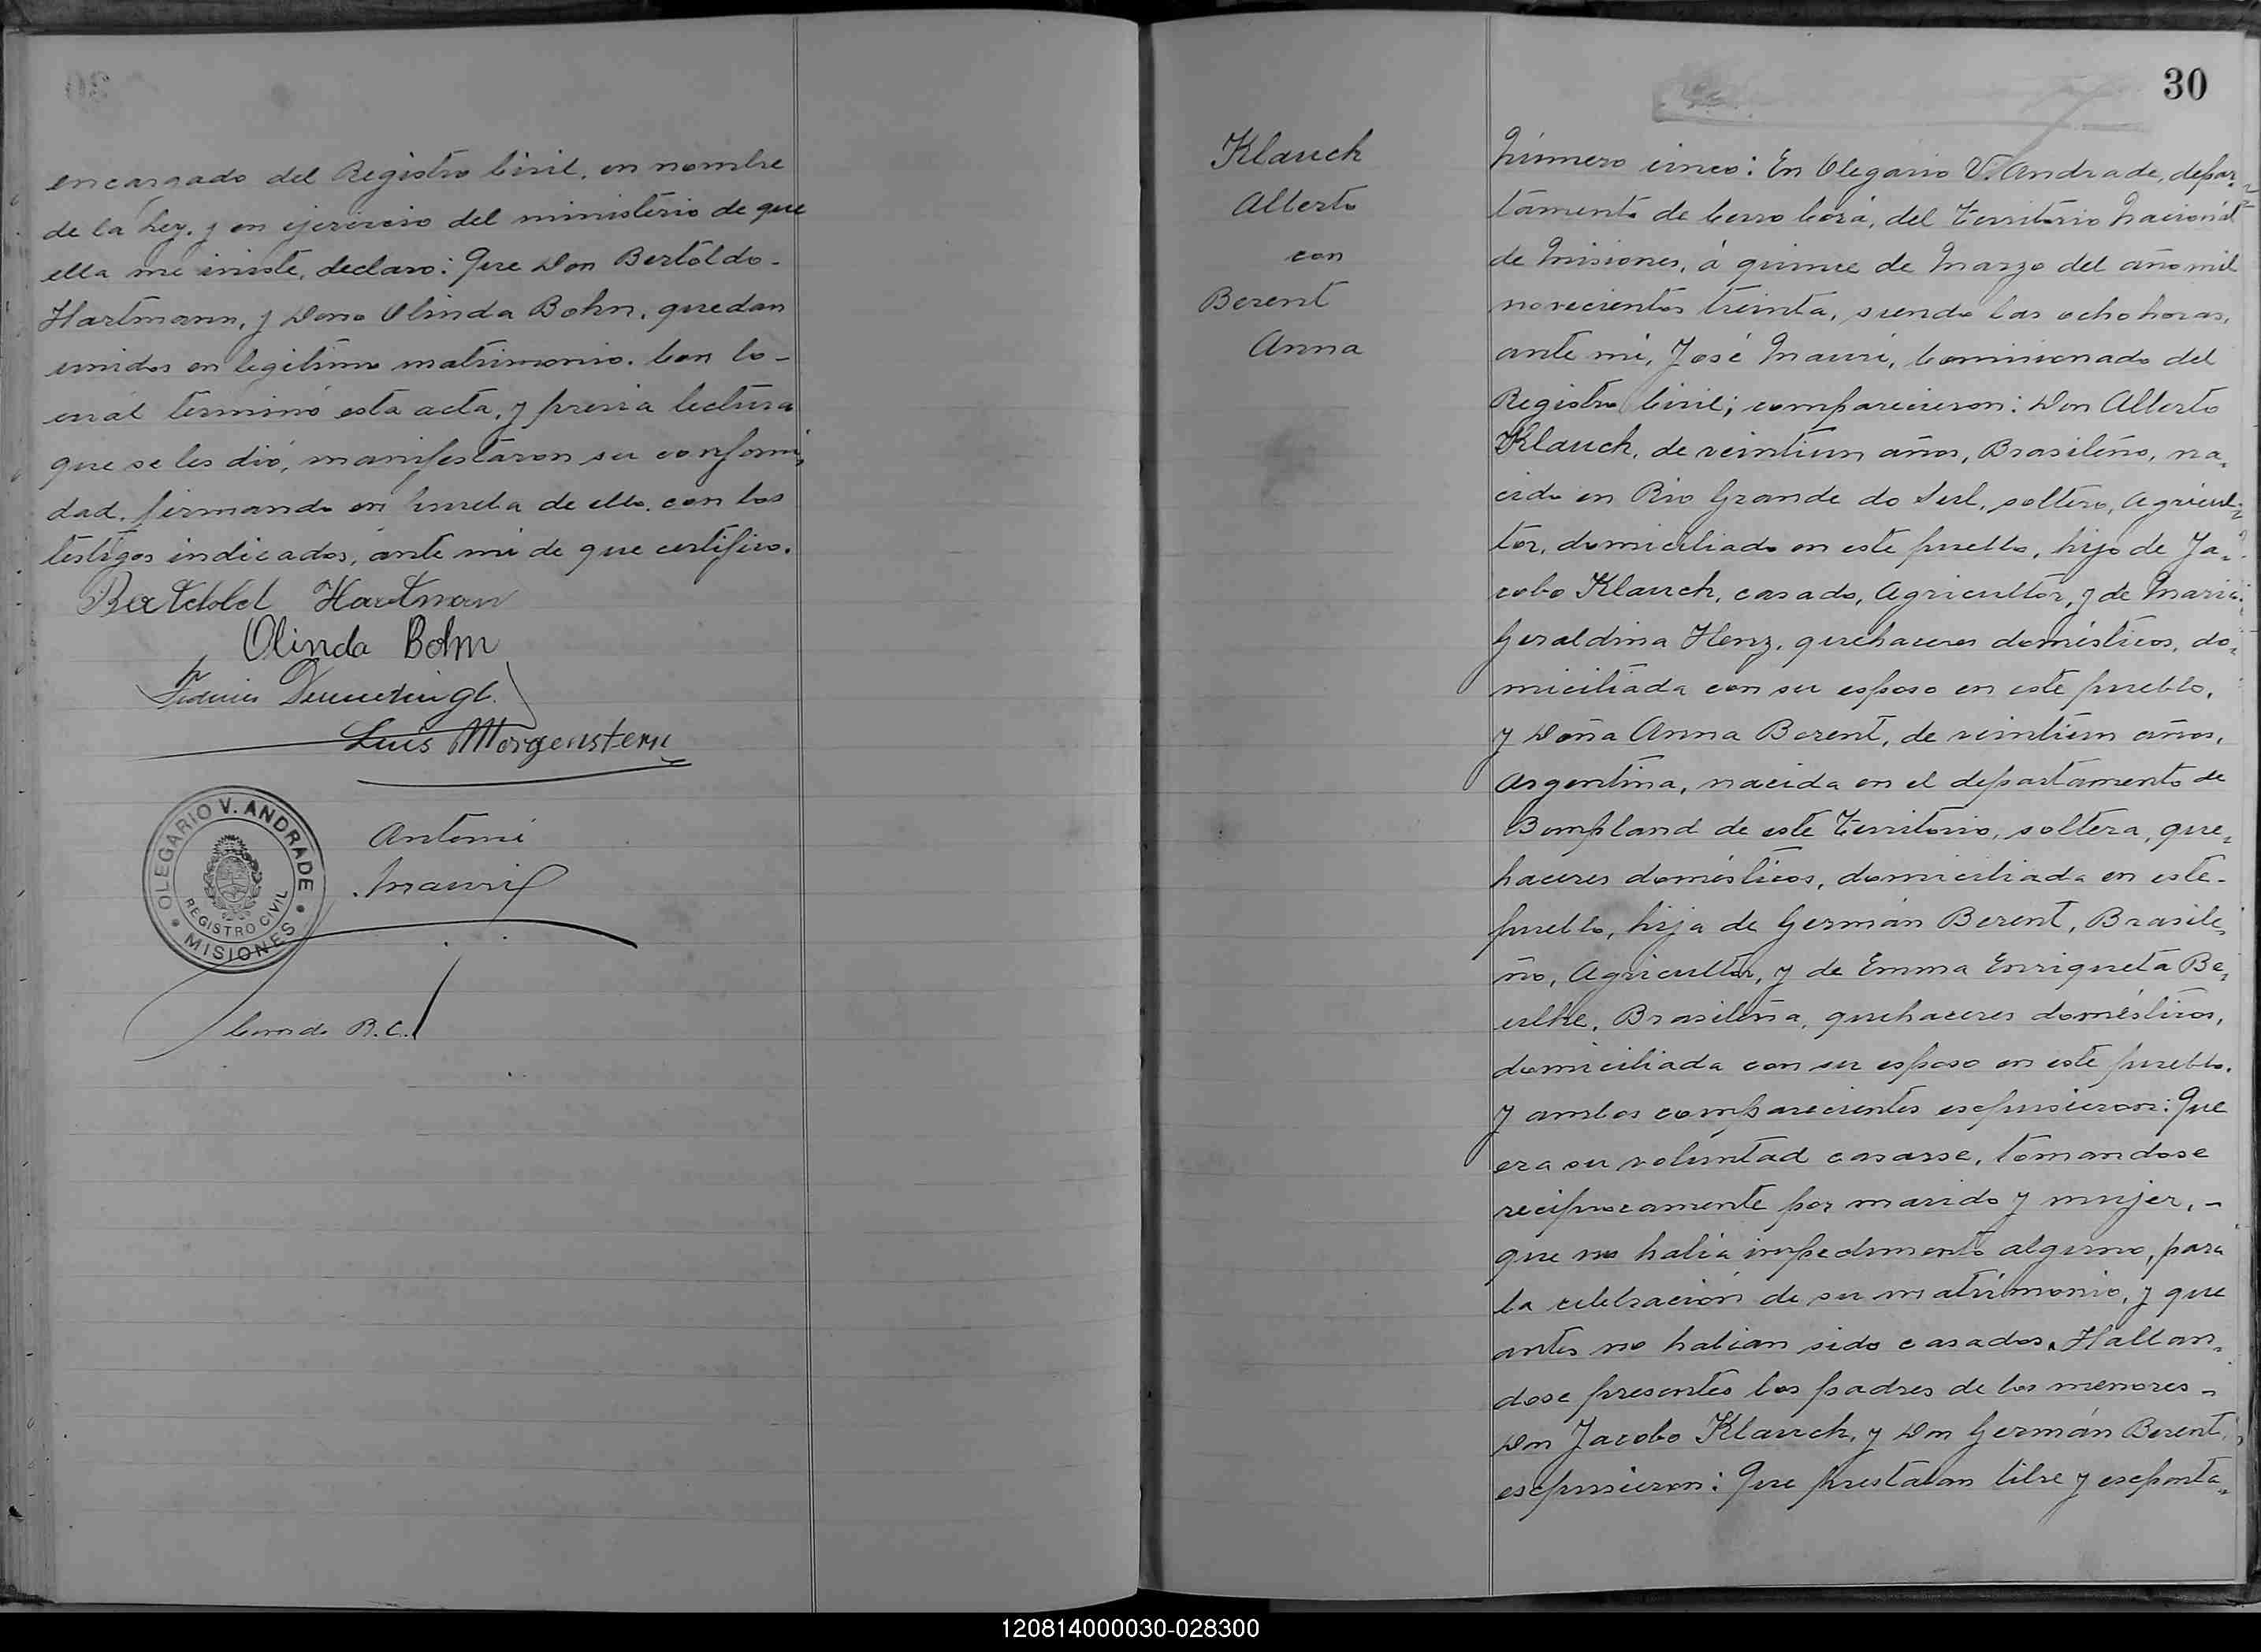 encargado del Registro Civil, en nombre
de la Ley, y en ejercicio del ministerio de que
ella me inviste, declaro: Que Don Bertoldo-
Hartmann, y Dona Olinda Bohn, quedan
unidos en legitimo matrimonio. Con lo-
cual terminó esta acta, y previa lectura
que se les dió, manifestaron su conformi-
dad, firmando en prueba de ello, con los
testigos indicados, ante mi de que certifico.
Bertdold Hartman
Olinda Bohn
Luis Morgenstern
OLEGARIO V. ANDRADE
REGISTRO CIVIL
MISIONES
Antemi
Mauri
Comdo R.C.
30
Klauch
Alberto
con
Berent
Anna
Número cinco: En Olegario V. Andrade, depar-
tamento de Cerro Corá, del Territorio Nacional
de Misiones, á quince de Marzo del año mil
novecientos treinta, siendo las ocho horas,
ante mi, José Mauri, Comisionado del
Registro Civil; comparecieron: Don Alberto
Klauch, de veintiun años, Brasileño, na-
cido en Rio Grande do Sul, soltero, Agricul-
tor, domiciliado en este pueblo, hijo de Ja-
cobo Klauch, casado, Agricultor, y de Maria
Geraldina Henz, quehaceres domésticos, do-
miciliada con su esposo en este pueblo,
y Doña Anna Berent, de veintiun años,
Argentina, nacida en el departamento de
Bompland de este Territorio, soltera, que-
haceres domésticos, domiciliada en este-
pueblo, hija de Germán Berent, Brasile-
ño, Agricultor, y de Emma Enriqueta Be-
ulke, Brasileña, quehaceres domésticos,
domiciliada con su esposo en este pueblo.
y ambos comparecientes escpusieron: Que
era su voluntad casarse, tomandose
reciprocamente por marido y mujer, -
que no habia impedimento alguno, para
la celebración de su matrimonio, y que
antes no habian sido casados. Hallan-
dose presentes los padres de los menores -
Don Jacobo Klauch, y Don Germán Berent,
escpusieron: Que prestaban libre y esponta-
120814000030-028300